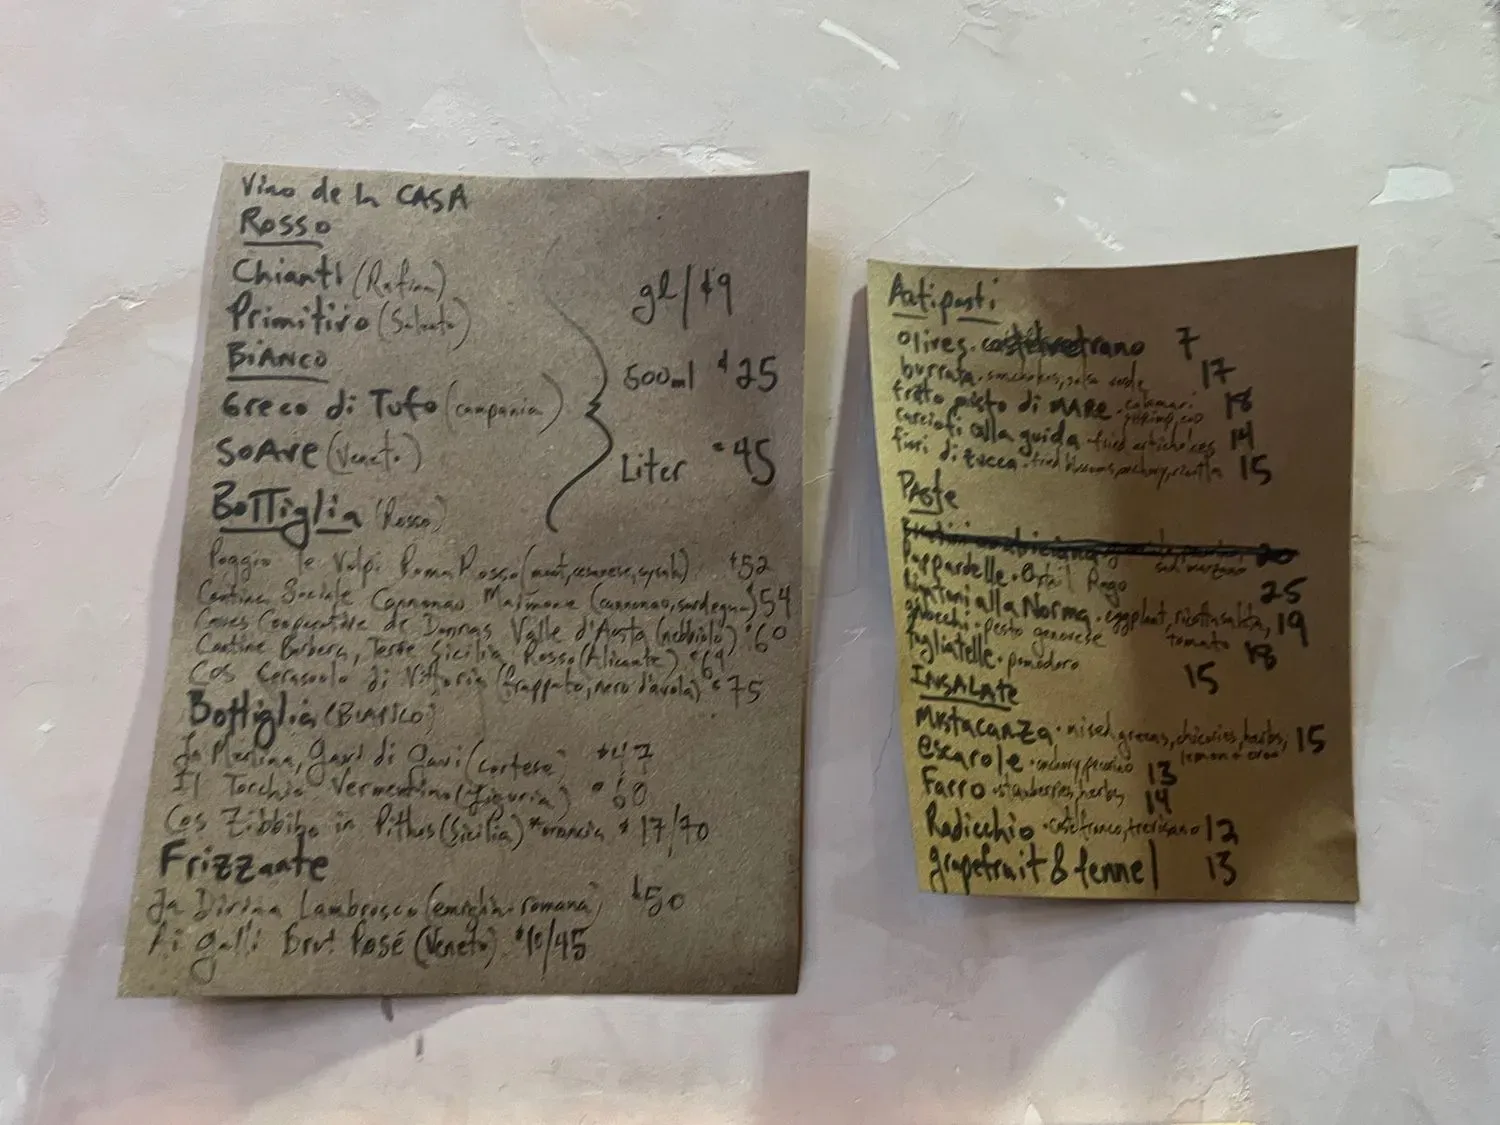 Vino de la CASA
Rosso
Chianti (Rufina)
Primitivo (Salento)
BiANCO
Greco di Tufo (campania)
SOAVE (Veneto)
gl/$9
500ml $25
Liter $45
BoTTiglia (Rosso)
Poggio le Volpi Roma Rosso $52
Cantina Sociale Cannonau $54
Caves Cooperative de Donnas Valle d'Aosta (nebbiolo) $60
Cantine Barbera, Sicilia Rosso (Alicante) $64
COS Cerasuolo di Vittoria (frappato, nero d'avola) $75
Bottiglia (BIANCO)
La Gavi di Gavi (cortese) $47
Il Torchio Vermentino (Liguria) $60
Cos Zibbibo in Pithos (Sicilia) *arancia $17/70
Frizzante
La Divina Lambrusco (emiglia-romana) $50
Ai galli Brut Rosé (Veneto) $10/45
Antipasti
olives. 7
burrata. salsa verde 17
frito misto di MARE. calamari 18
shrimp, cod
carciofi alla guida - fried artichokes 14
fiori di zucca. fried blossoms, anchovy, ricotta 15
PASte
20
san marzano
pappardelle. Oxtail Ragu 25
rigatoni alla Norma. eggplant, ricotta salata, 19
tomato
gnocchi. pesto genovese 18
tagliatelle. pomodoro 15
INSALATE
Mistacanza. mixed greens, chicories, herbs, 15
lemon &
escarole. anchovy, pecorino 13
Farro. strawberries, herbs 14
Radicchio. castelfranco, trevisano 12
grapefruit & fennel 13